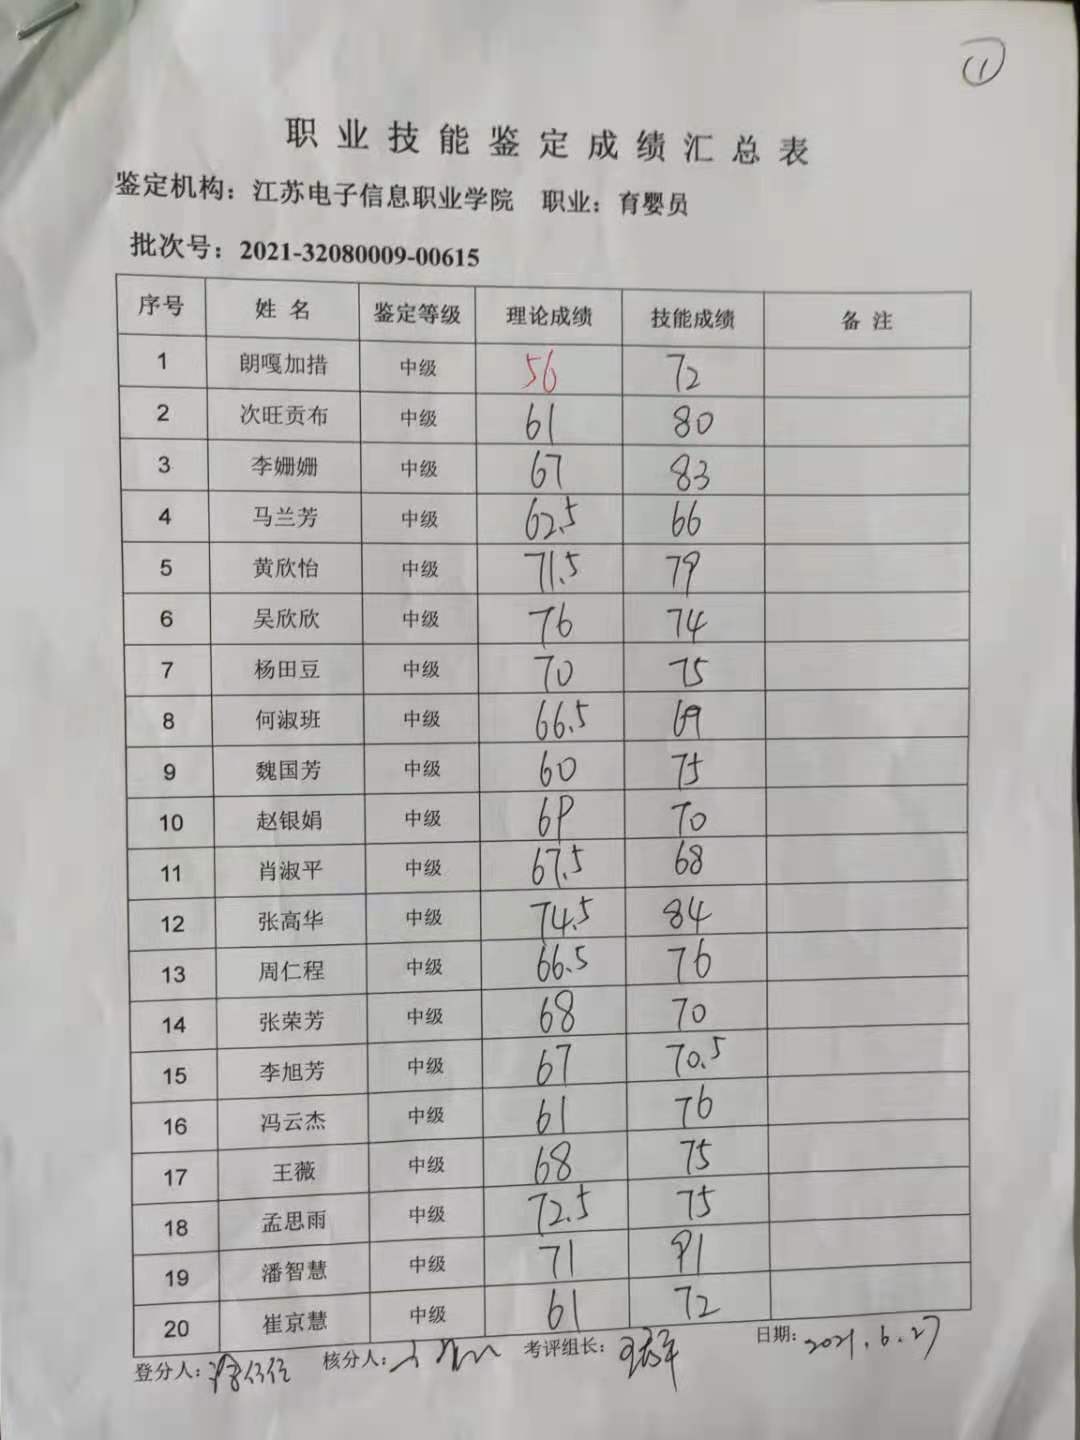 ①
职业技能鉴定成绩汇总表
鉴定机构：江苏电子信息职业学院 职业：育婴员
批次号：2021-32080009-00615
序号 姓名 鉴定等级 理论成绩 技能成绩 备注
1 朗嘎加措 中级 56 72
2 次旺贡布 中级 61 80
3 李姗姗 中级 67 83
4 马兰芳 中级 62.5 66
5 黄欣怡 中级 71.5 79
6 吴欣欣 中级 76 74
7 杨田豆 中级 70 75
8 何淑班 中级 66.5 69
9 魏国芳 中级 60 75
10 赵银娟 中级 69 70
11 肖淑平 中级 67.5 68
12 张高华 中级 74.5 84
13 周仁程 中级 66.5 76
14 张荣芳 中级 68 70
15 李旭芳 中级 67 70.5
16 冯云杰 中级 61 76
17 王薇 中级 68 75
18 孟思雨 中级 72.5 75
19 潘智慧 中级 71 91
20 崔京慧 中级 61 72
登分人： 核分人： 考评组长： 日期：2021.6.27